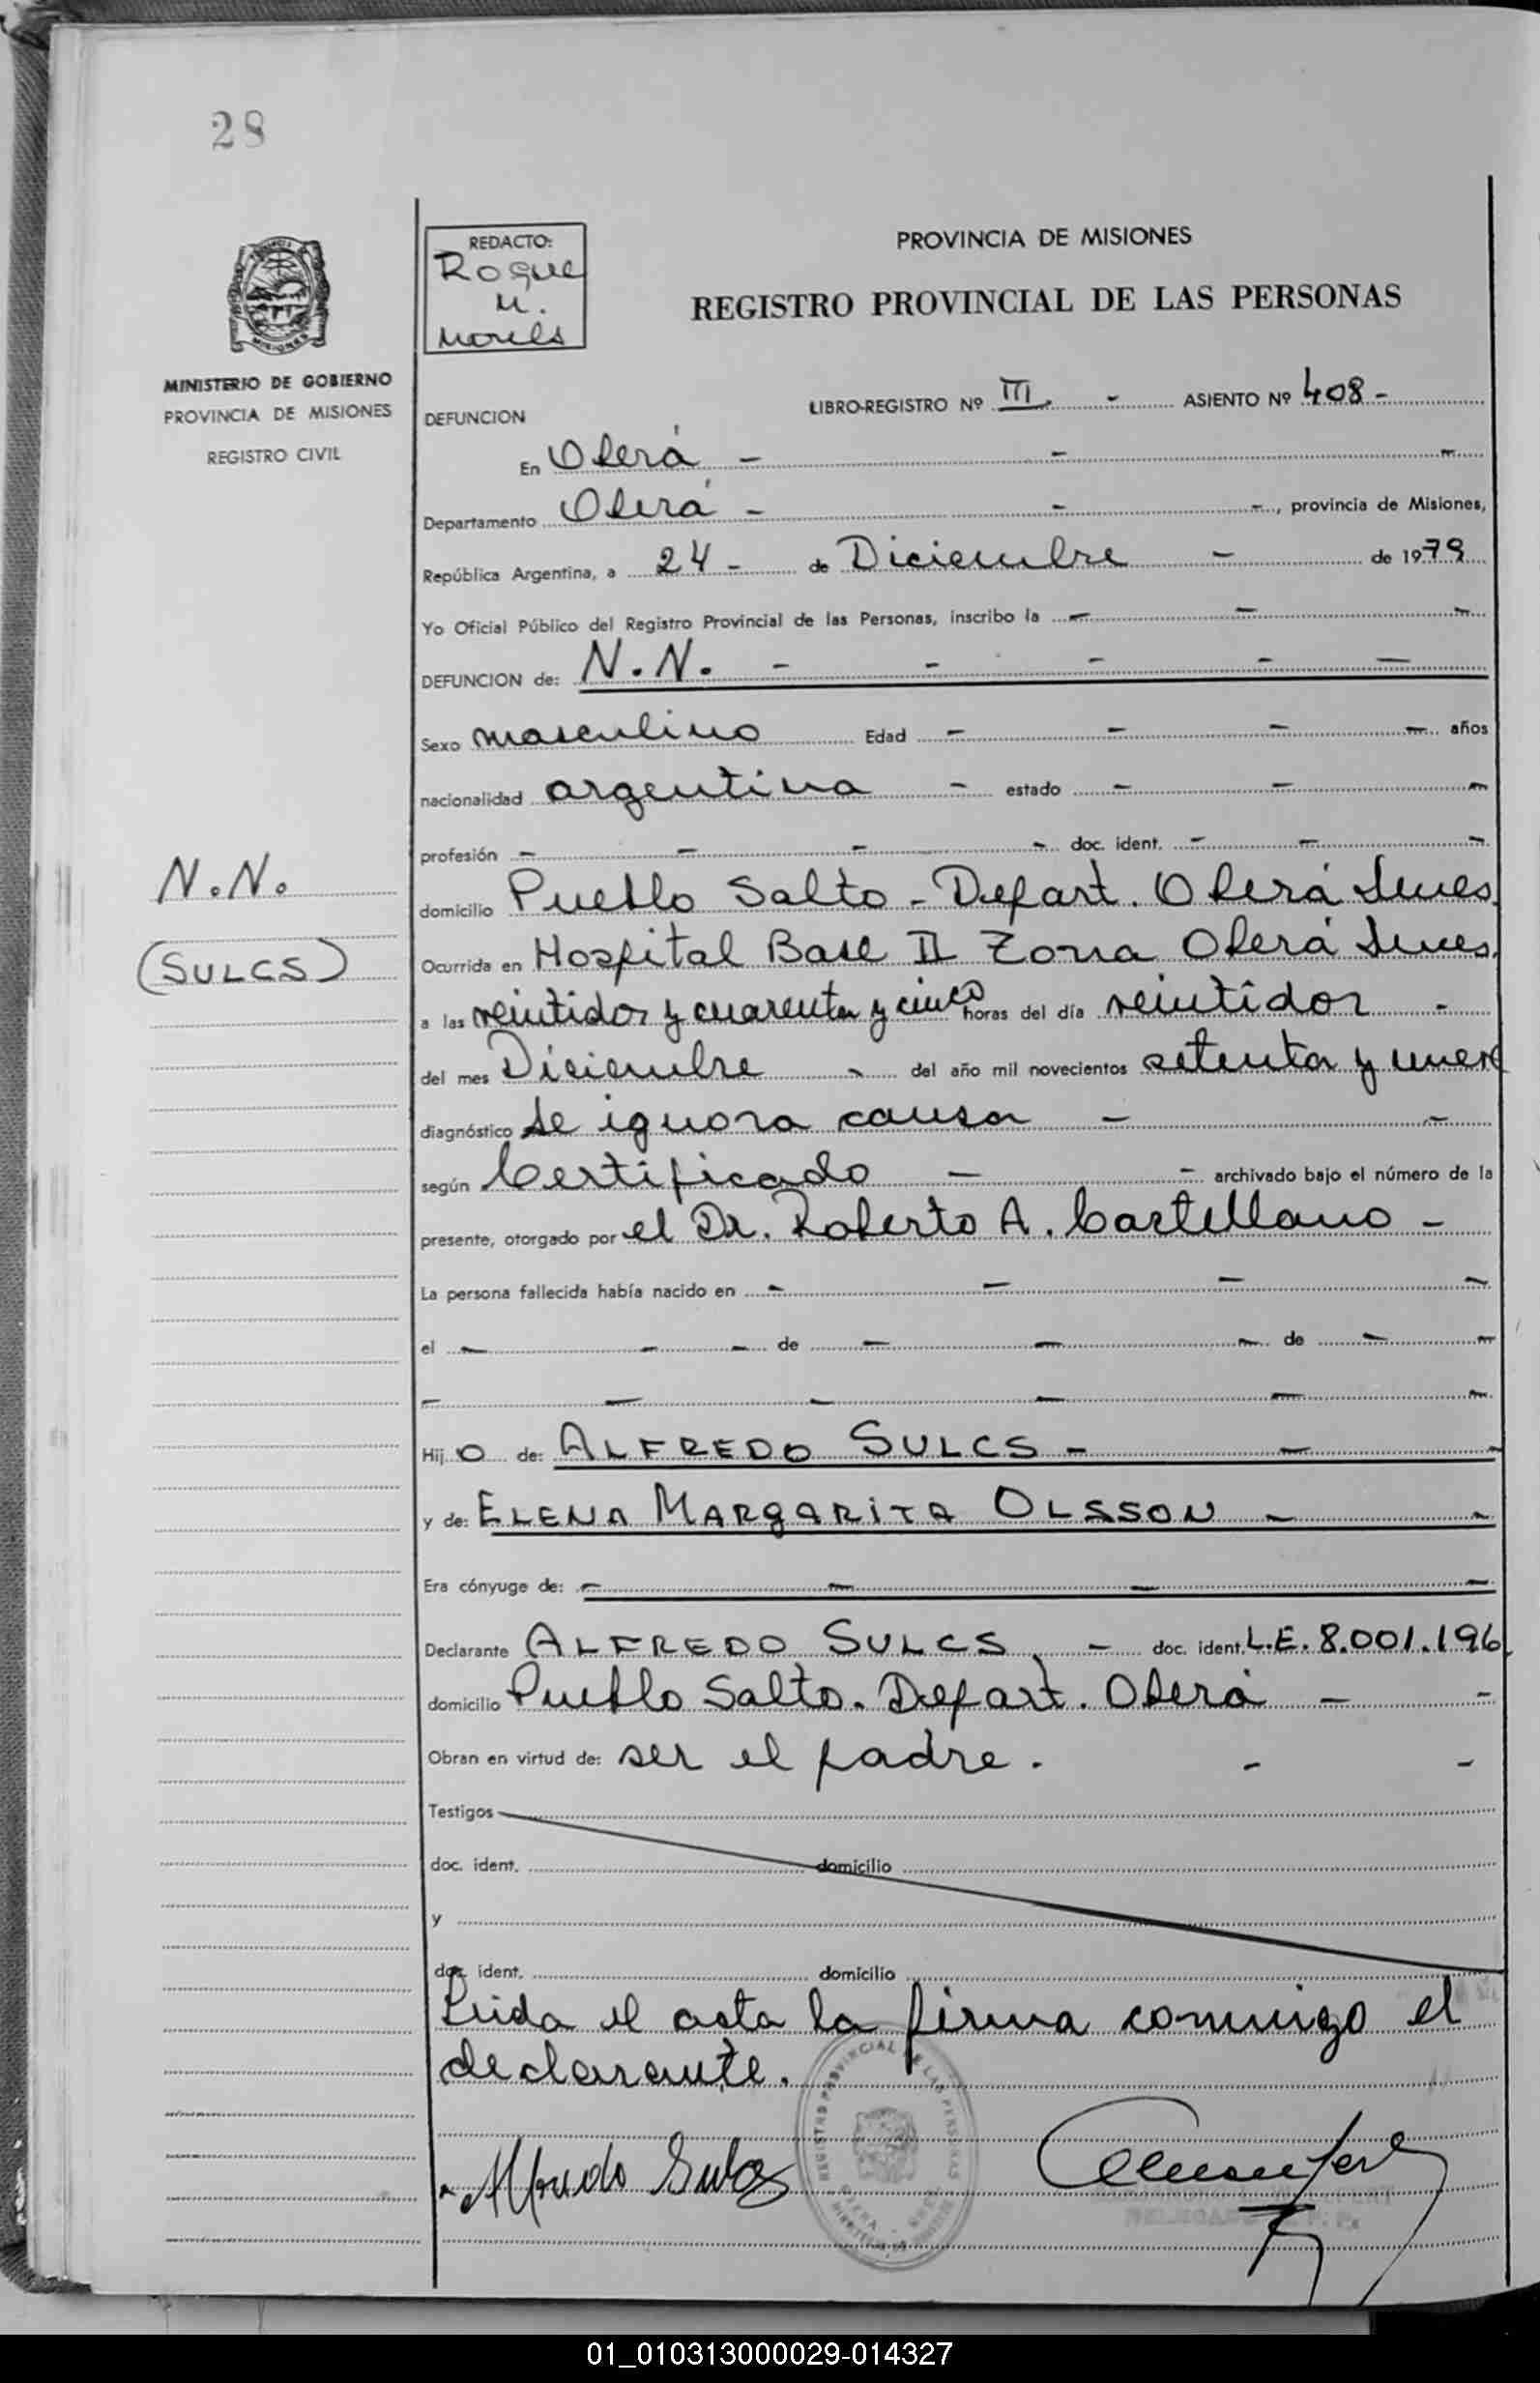 28
REDACTO:
Roque
M.
PROVINCIA DE MISIONES
REGISTRO PROVINCIAL DE LAS PERSONAS
MISIONES
MINISTERIO DE GOBIERNO
PROVINCIA DE MISIONES
REGISTRO CIVIL
DEFUNCION LIBRO-REGISTRO Nº III - ASIENTO Nº 408 -
En Oberá - - -
Departamento Oberá - - -, provincia de Misiones,
República Argentina, a 24 - de Diciembre - de 1979
Yo Oficial Público del Registro Provincial de las Personas, inscribo la - - -
DEFUNCION de: N.N. - - - - -
Sexo masculino Edad - - - - años
nacionalidad argentina - estado - - -
profesión - - - - doc. ident. - - -
N.N.
(SULCS)
domicilio Pueblo Salto - Depart. Oberá
Ocurrida en Hospital Base II Zona Oberá
a las veintidos y cuarenta y cinco horas del día veintidos -
del mes Diciembre - del año mil novecientos setenta y nueve
diagnóstico se ignora causa - -
según Certificado - - archivado bajo el número de la
presente, otorgado por el Dr. Roberto A. Castellano -
La persona fallecida había nacido en - - - -
el - - - de - - - de - -
- - - - - -
Hijo de: ALFREDO SULCS - - -
y de: ELENA MARGARITA OLSSON - -
Era cónyuge de: - - - -
Declarante ALFREDO SULCS - doc. ident. L.E. 8.001.196
domicilio Pueblo Salto. Depart. Oberá - -
Obran en virtud de: ser el padre. - -
Testigos
doc. ident. domicilio
y
doc. ident. domicilio
Leida el acta la firma conmigo el
declarante.
Alfredo Sulcs
REGISTRO PROVINCIAL DE LAS PERSONAS
01_010313000029-014327